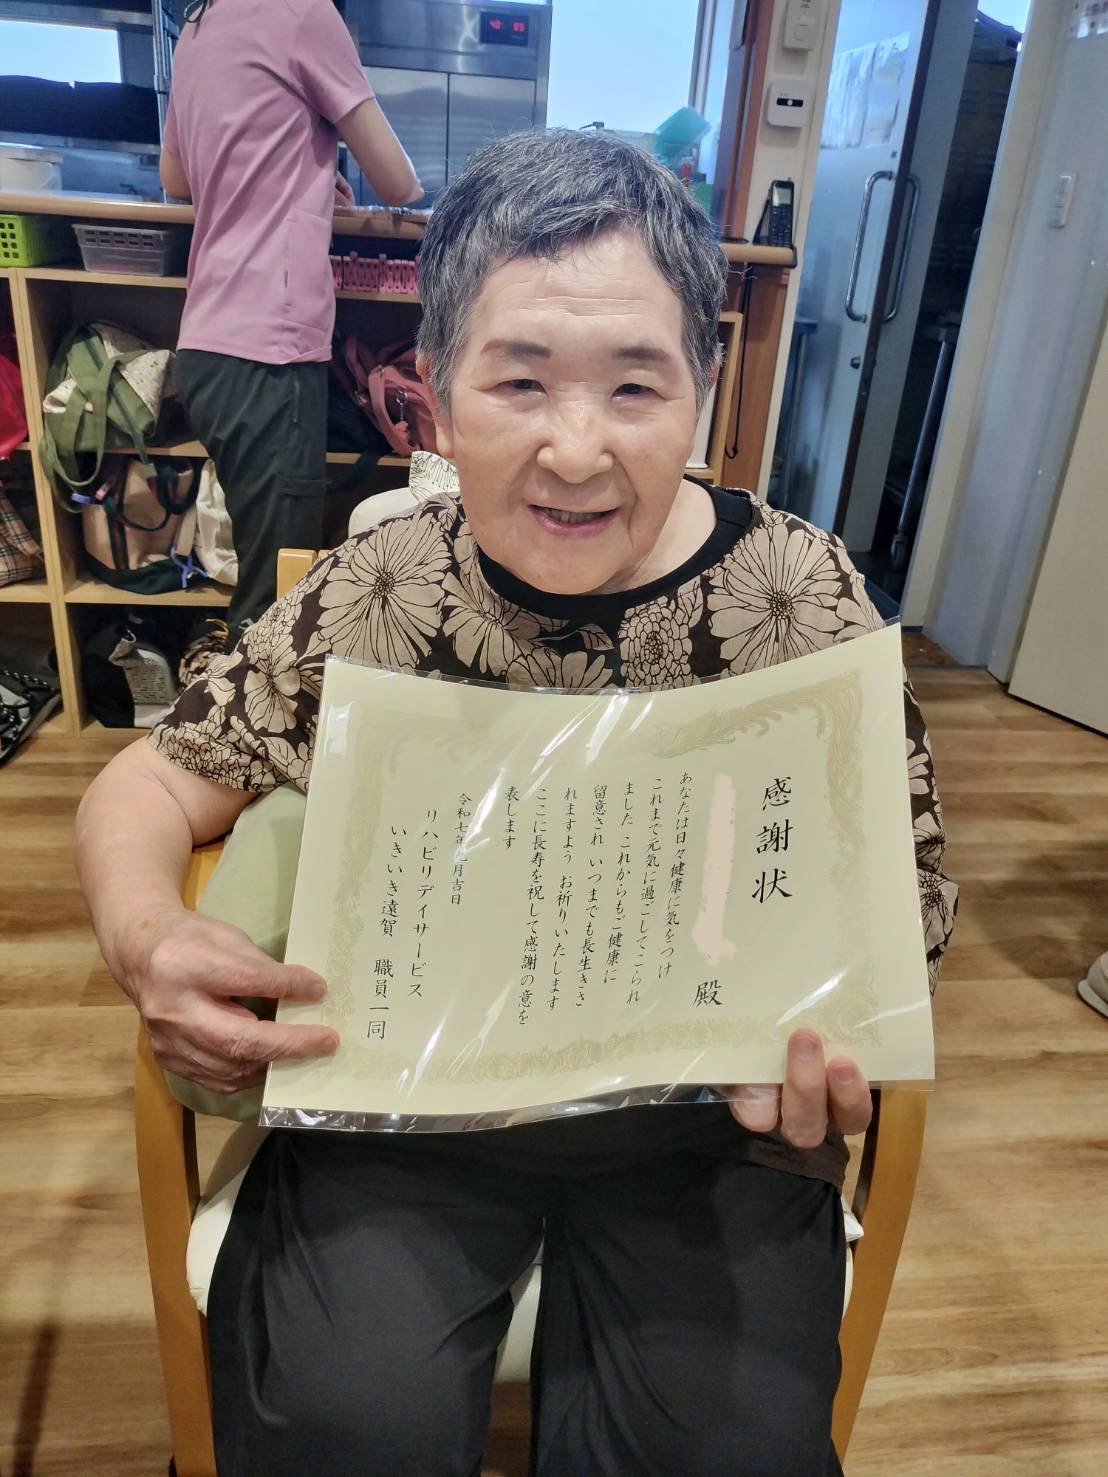 感謝状
殿
あなたは日々健康に気をつけ
これまで元気に過ごしてこられ
ました これからもご健康に
留意され いつまでも長生きさ
れますよう お祈りいたします
ここに長寿を祝して感謝の意を
表します
令和七年九月吉日
リハビリデイサービス
いきいき遠賀 職員一同